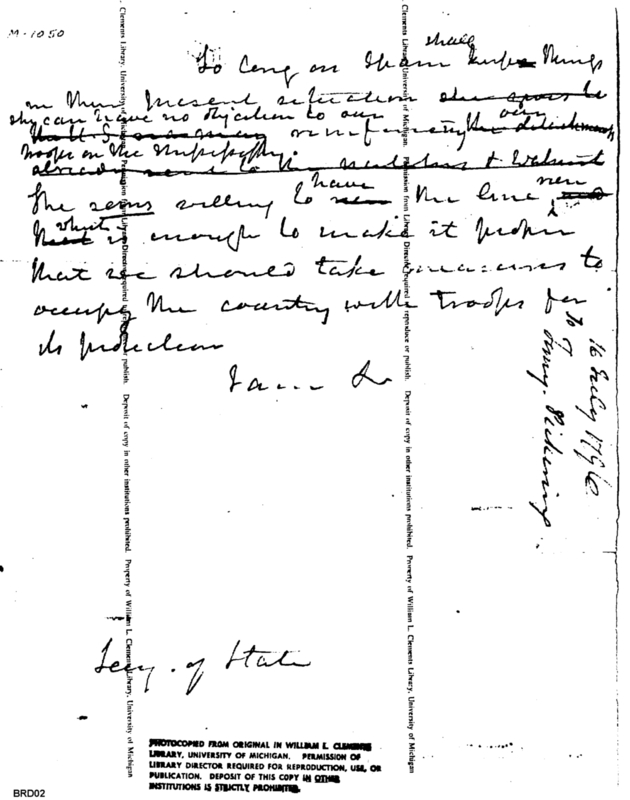 M-1050
So long as Spain shall keep things
in their present situation she
she can have no objection to our reinforcing the our detachments
troops on the Mississippi.
already sent to the & Walnut
She seems willing to have the line run
what is enough to make it proper
that we should take measures to
occupy the country with troops for
its protection
I am Sr
16 July 1796.
To T
Timy. Pickering
Secy. of State
Clements Library, University of Michigan. Permission from Library Director required to reproduce or publish. Deposit of copy in other institutions prohibited. Property of William L. Clements Library, University of Michigan
Clements Library, University of Michigan. Permission from Library Director required to reproduce or publish. Deposit of copy in other institutions prohibited. Property of William L. Clements Library, University of Michigan
PHOTOCOPIED FROM ORIGINAL IN WILLIAM L. CLEMENTS
LIBRARY, UNIVERSITY OF MICHIGAN. PERMISSION OF
LIBRARY DIRECTOR REQUIRED FOR REPRODUCTION, USE, OR
PUBLICATION. DEPOSIT OF THIS COPY IN OTHER
INSTITUTIONS IS STRICTLY PROHIBITED.
BRD02